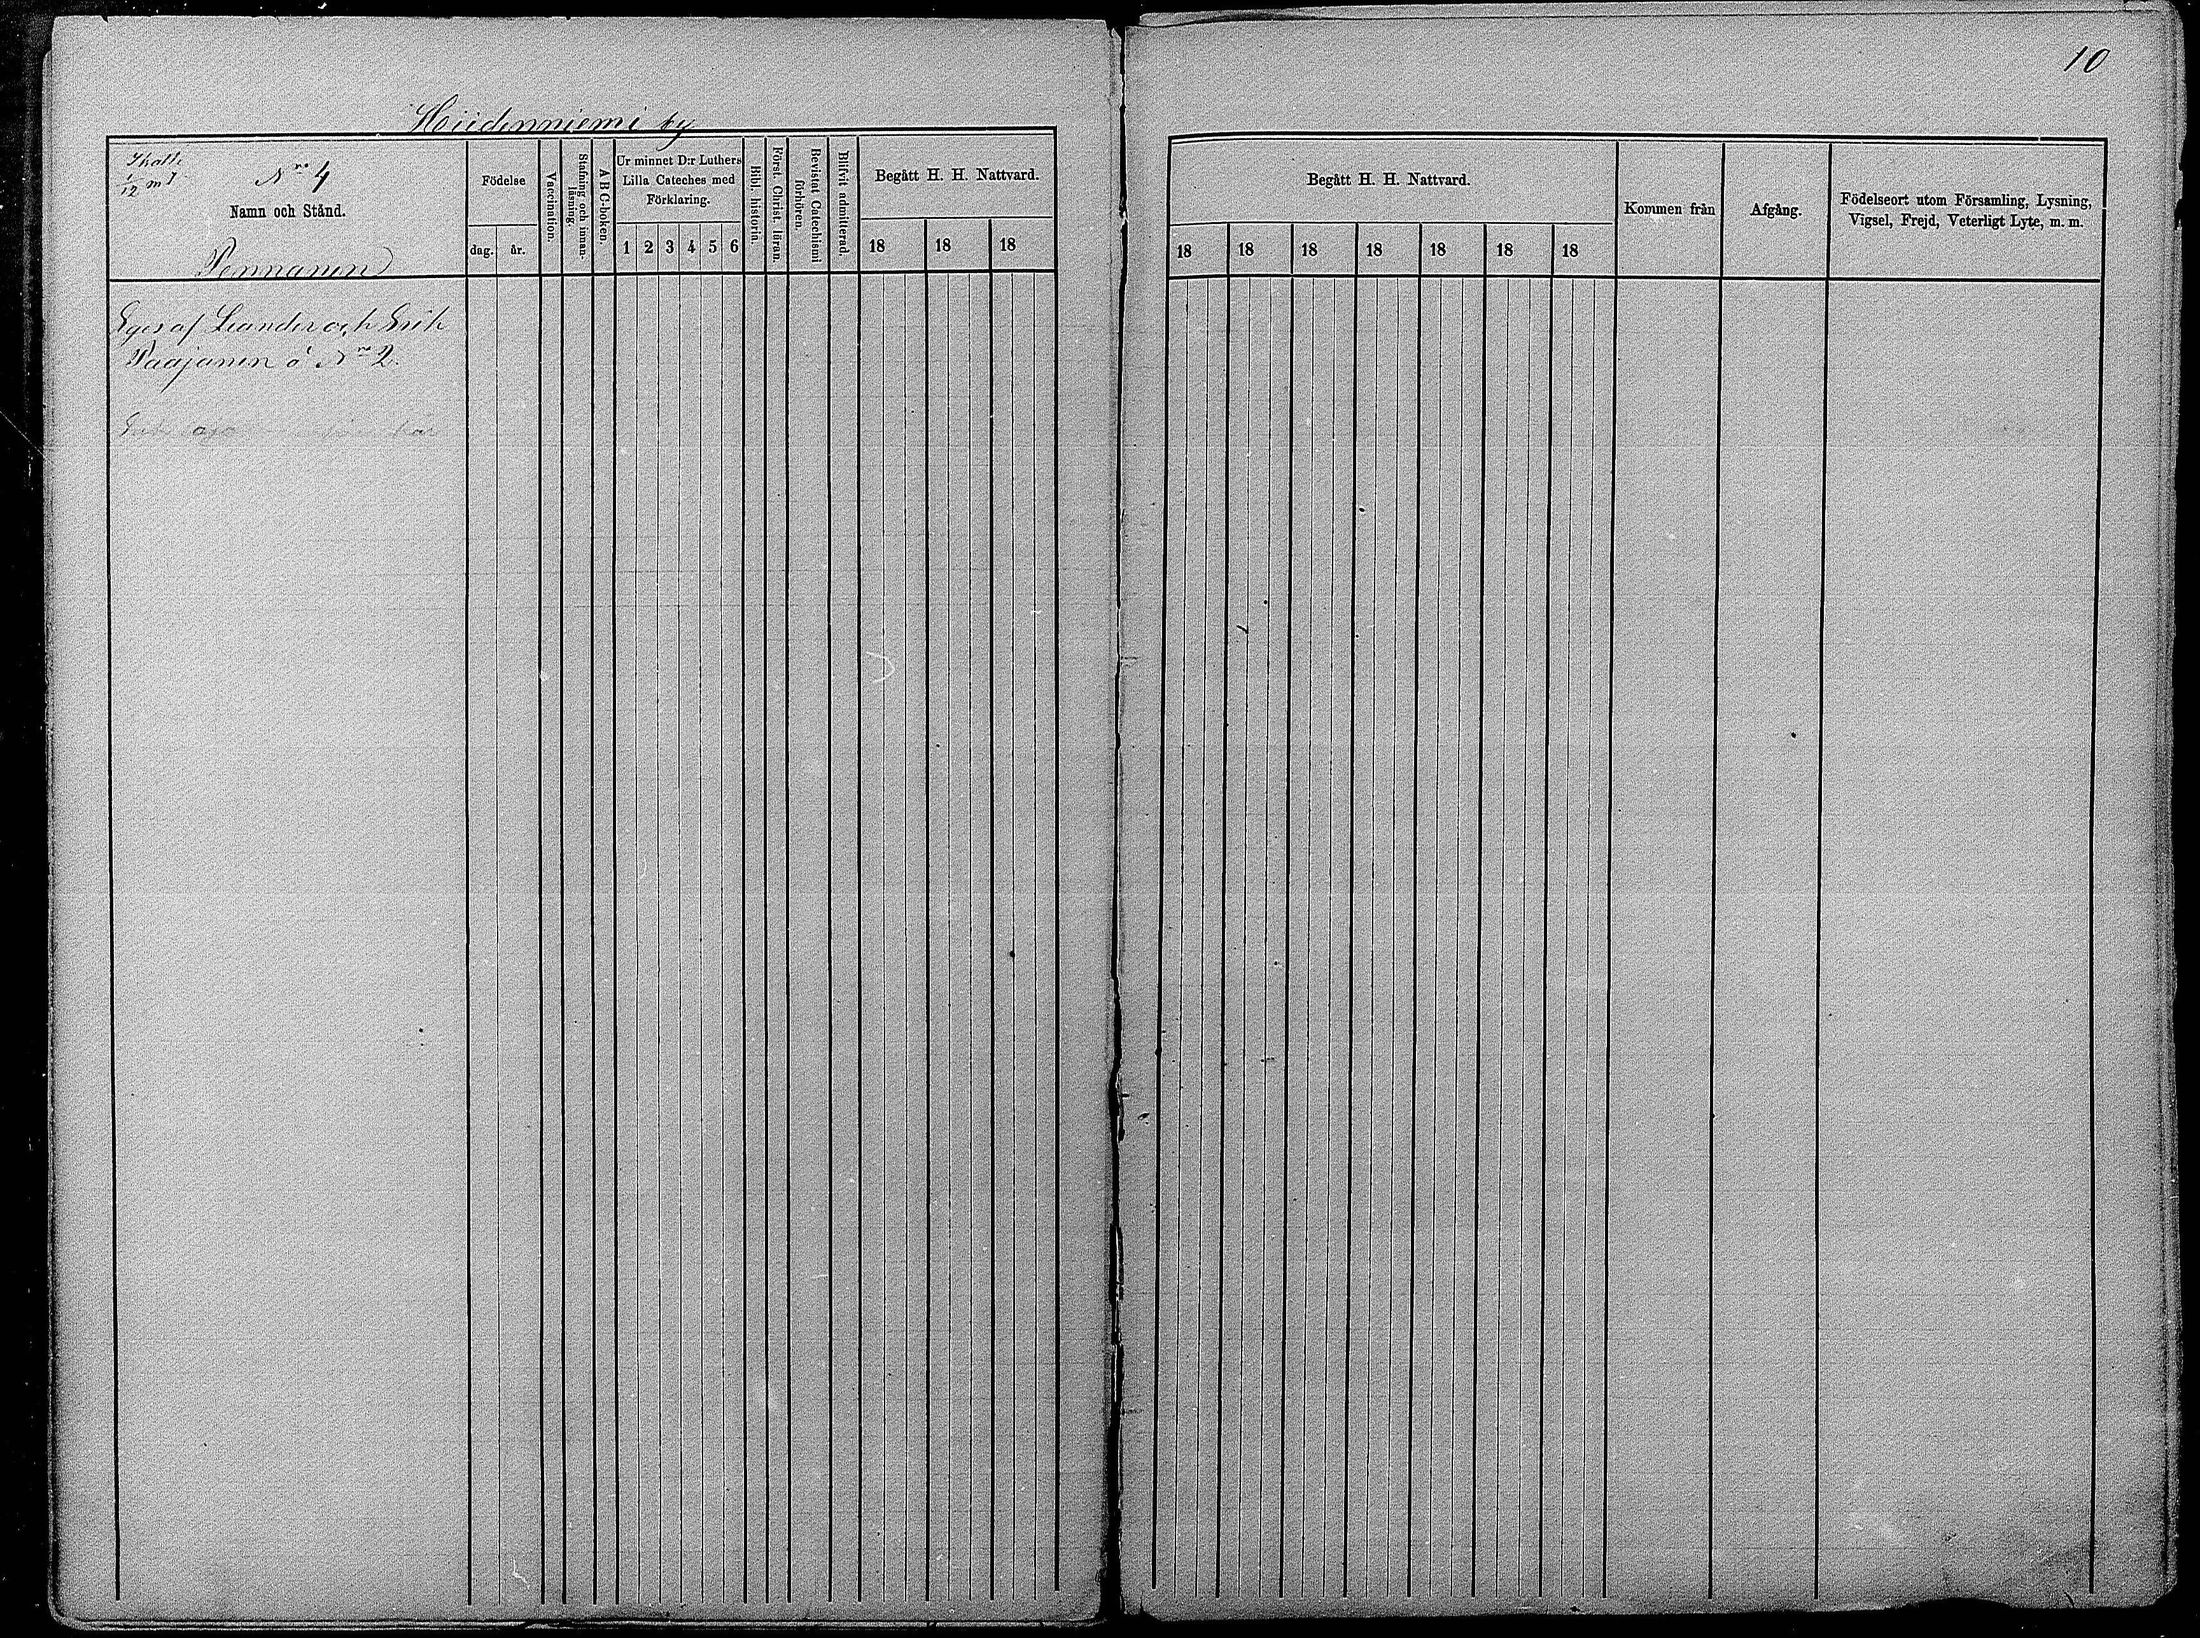 10
Hiidenniemi by
Skatt
1/12 mt
Nro 4
Namn och Stånd.
Pennanen
Födelse
dag.
år.
Vaccination.
Stafning och innan-
läsning.
A B C-boken.
Ur minnet D:r Luthers
Lilla Cateches med
Förklaring.
1 2 3 4 5 6
Bibl. historia.
Först. Christ. läran.
Bevistat Catechismi
förhören.
Blifvit admitterad.
Begått H. H. Nattvard.
18 18 18
Eges af Leander och Erik
Paajanen å Nro 2.
Begått H. H. Nattvard.
18 18 18 18 18 18 18
Kommen från
Afgång.
Födelseort utom Församling, Lysning,
Vigsel, Frejd, Veterligt Lyte, m. m.